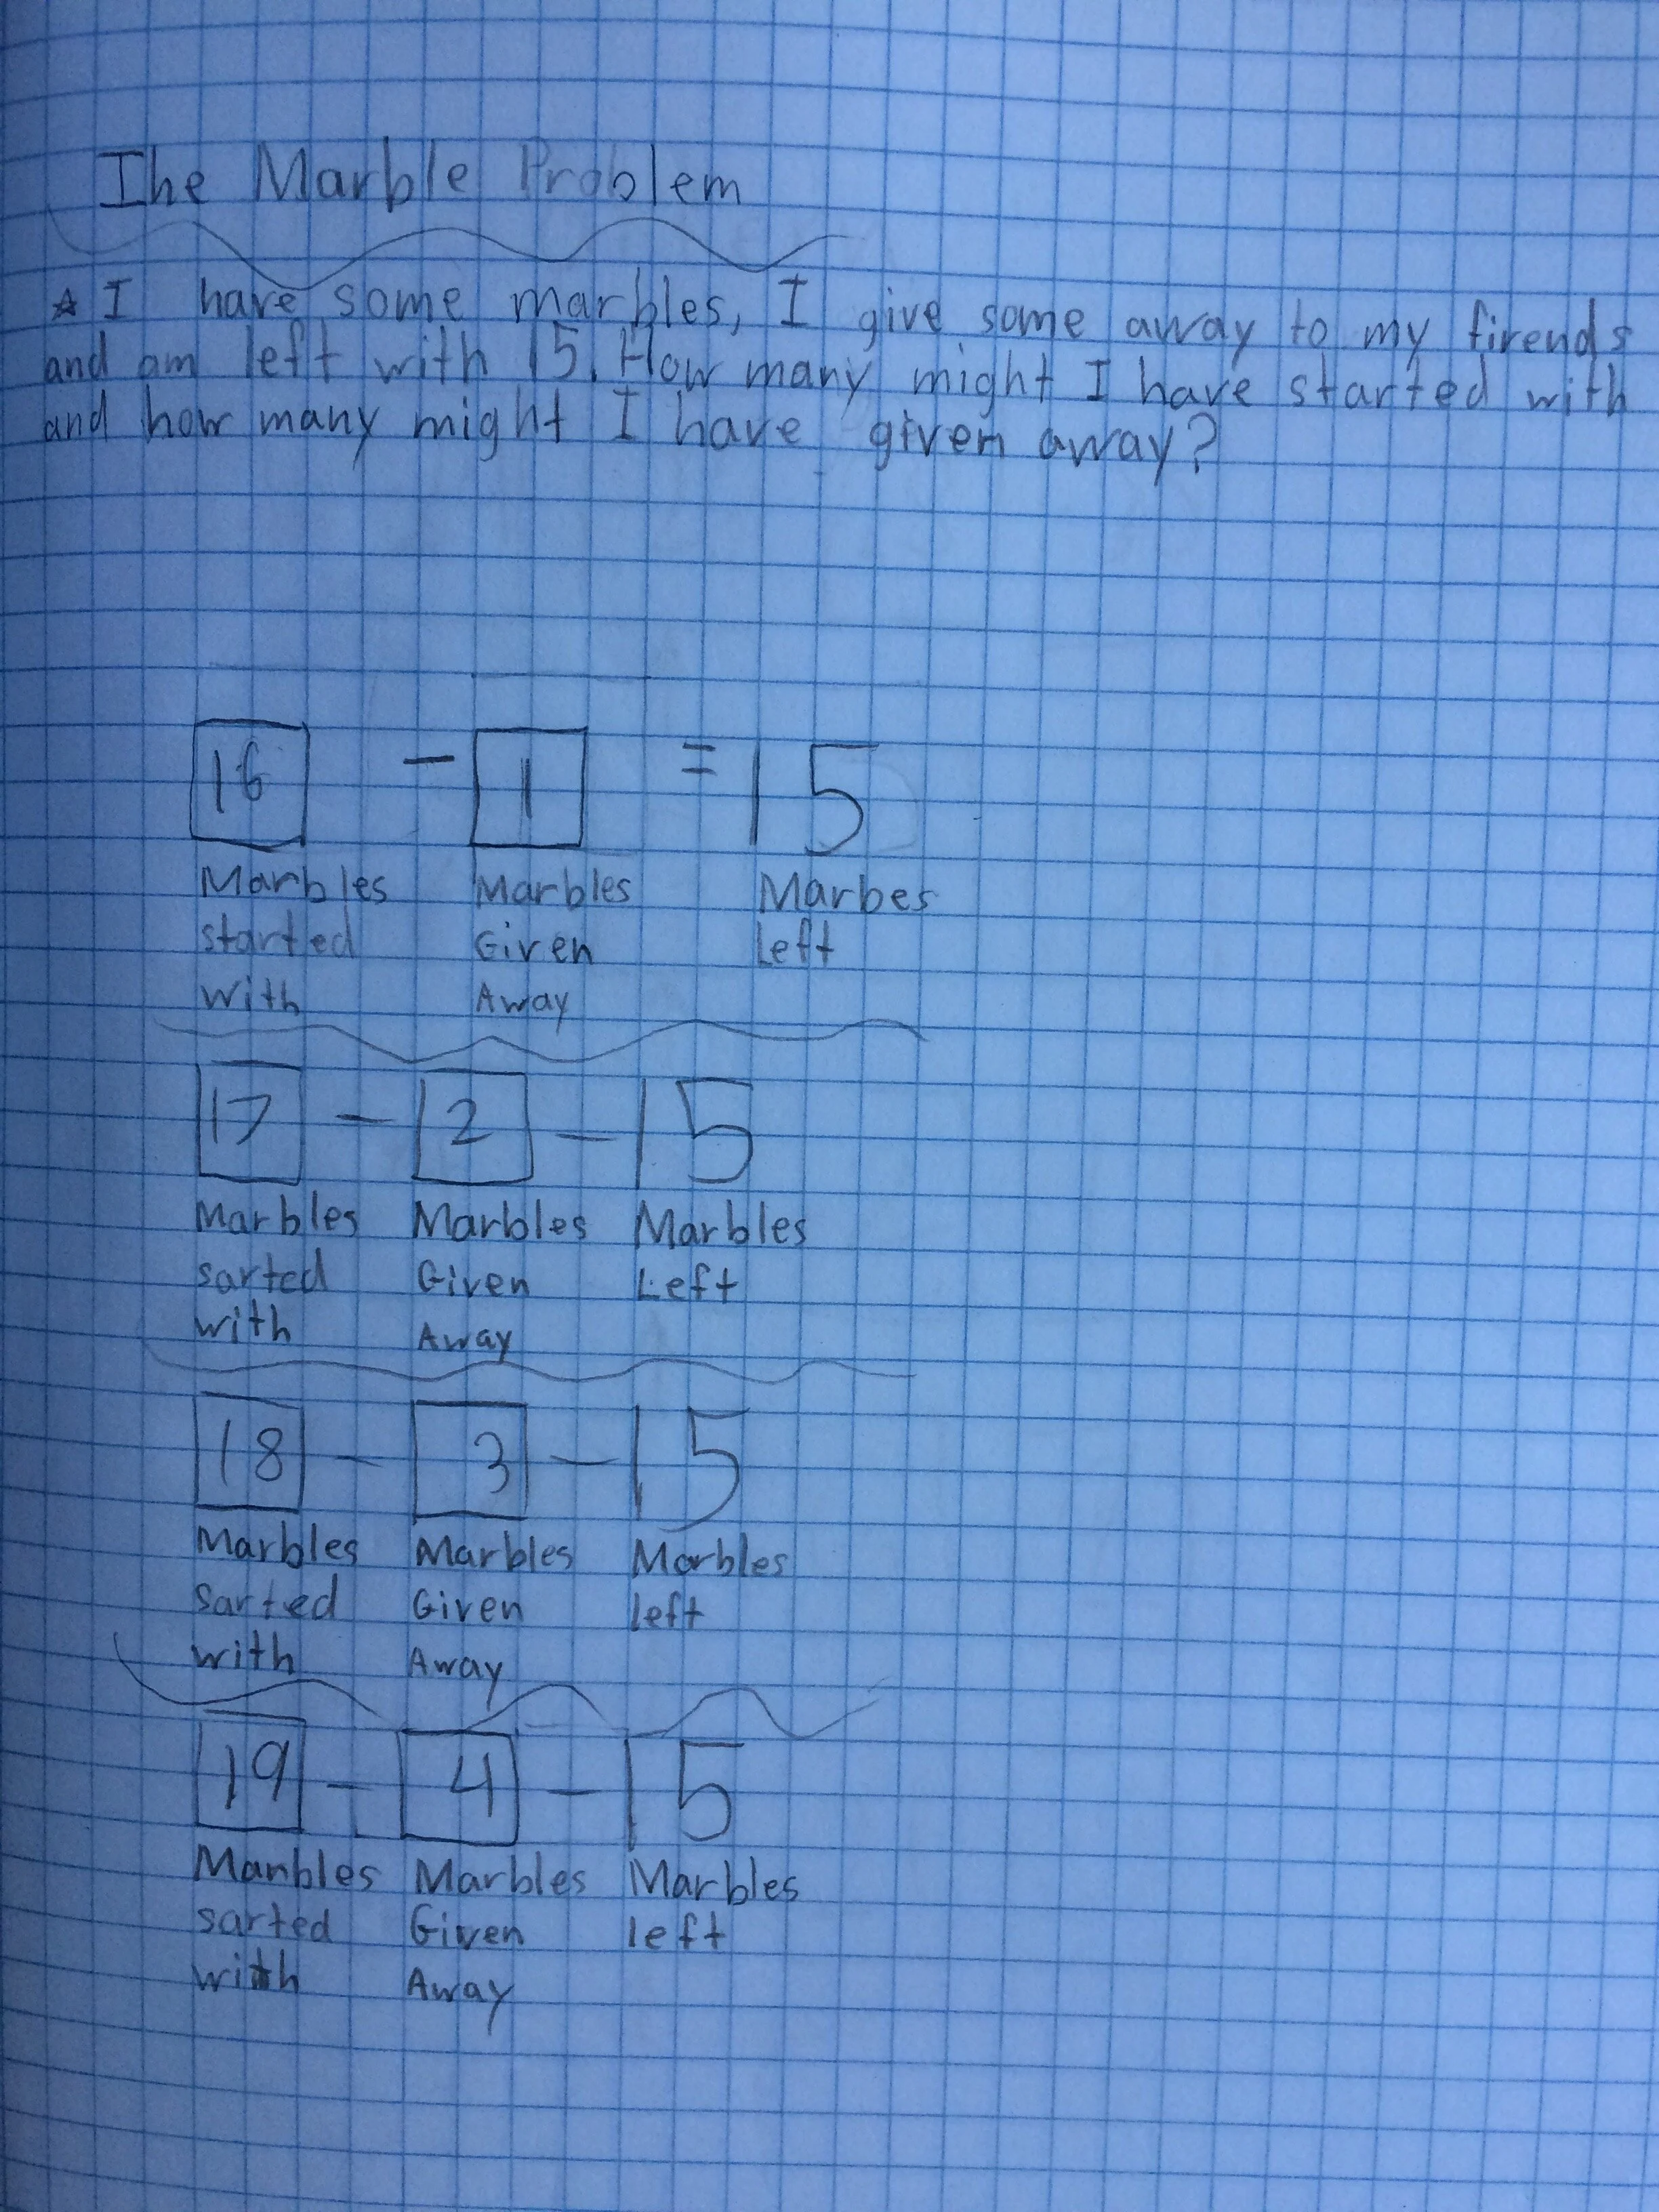 The Marble Problem
☆ I have some marbles, I give some away to my firends
and am left with 15. How many might I have started with
and how many might I have given away?
16 - 1 = 15
Marbles Marbles Marbes
started Given Left
with Away
17 - 2 - 15
Marbles Marbles Marbles
sarted Given Left
with Away
18 - 3 - 15
Marbles Marbles Marbles
sarted Given left
with Away
19 - 4 - 15
Manbles Marbles Marbles
sarted Given left
with Away